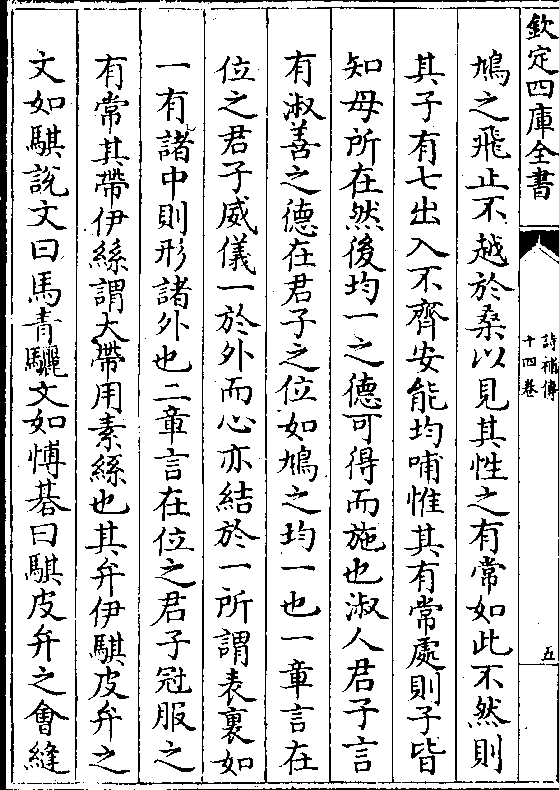 欽定四庫全書
詩補傳
十四卷
五
鳩之飛止不越於桑以見其性之有常如此不然則
其子有七出入不齊安能均哺惟其有常處則子皆
知母所在然後均一之德可得而施也淑人君子言
有淑善之德在君子之位如鳩之均一也一章言在
位之君子威儀一於外而心亦結於一所謂表裏如
一有諸中則形諸外也二章言在位之君子冠服之
有常其帶伊絲謂大帶用素絲也其弁伊騏皮弁之
文如騏說文曰馬青驪文如愽棊曰騏皮弁之會縫